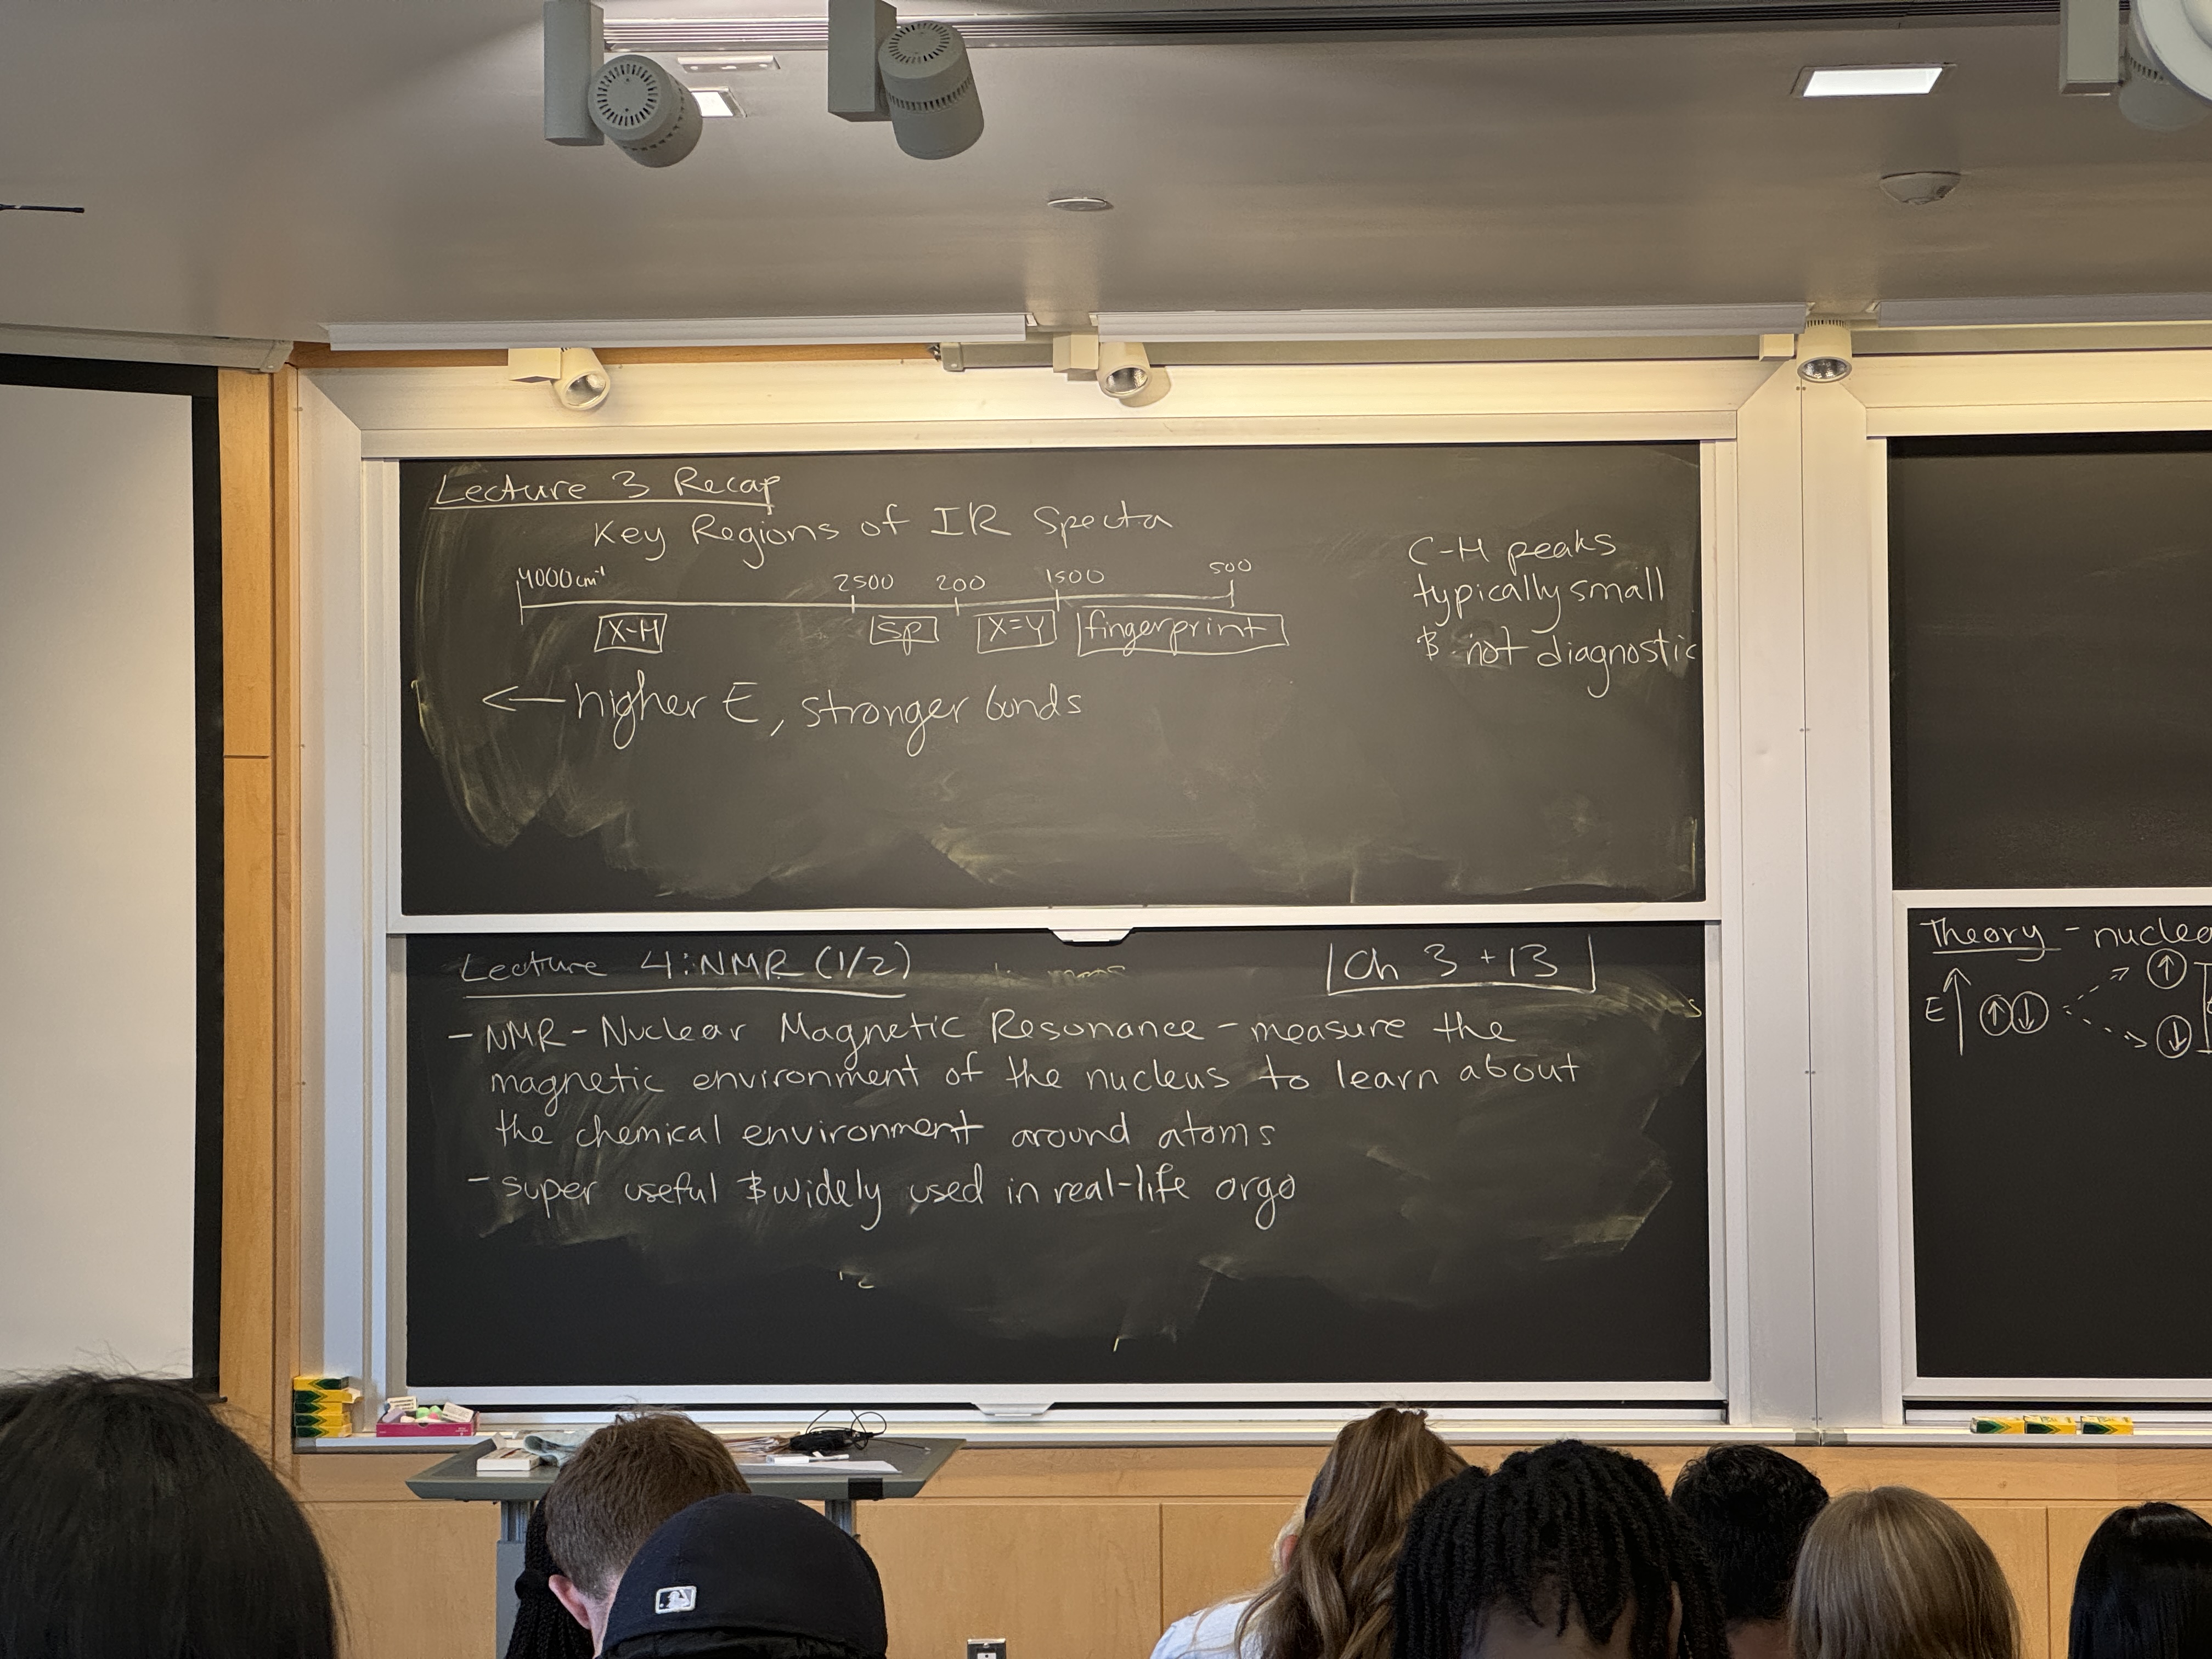 Lecture 3 Recap
Key Regions of IR Specta
4000 cm⁻¹ 2500 200 1500 500
X-H sp X=Y fingerprint
← higher E, stronger bonds
C-H peaks
typically small
& not diagnostic
Lecture 4: NMR (1/2)
Ch 3 + 13
- NMR - Nuclear Magnetic Resonance - measure the
magnetic environment of the nucleus to learn about
the chemical environment around atoms
- super useful & widely used in real-life orgo
Theory - nucleo
E ↑ ↑ ↓ ↑
↓